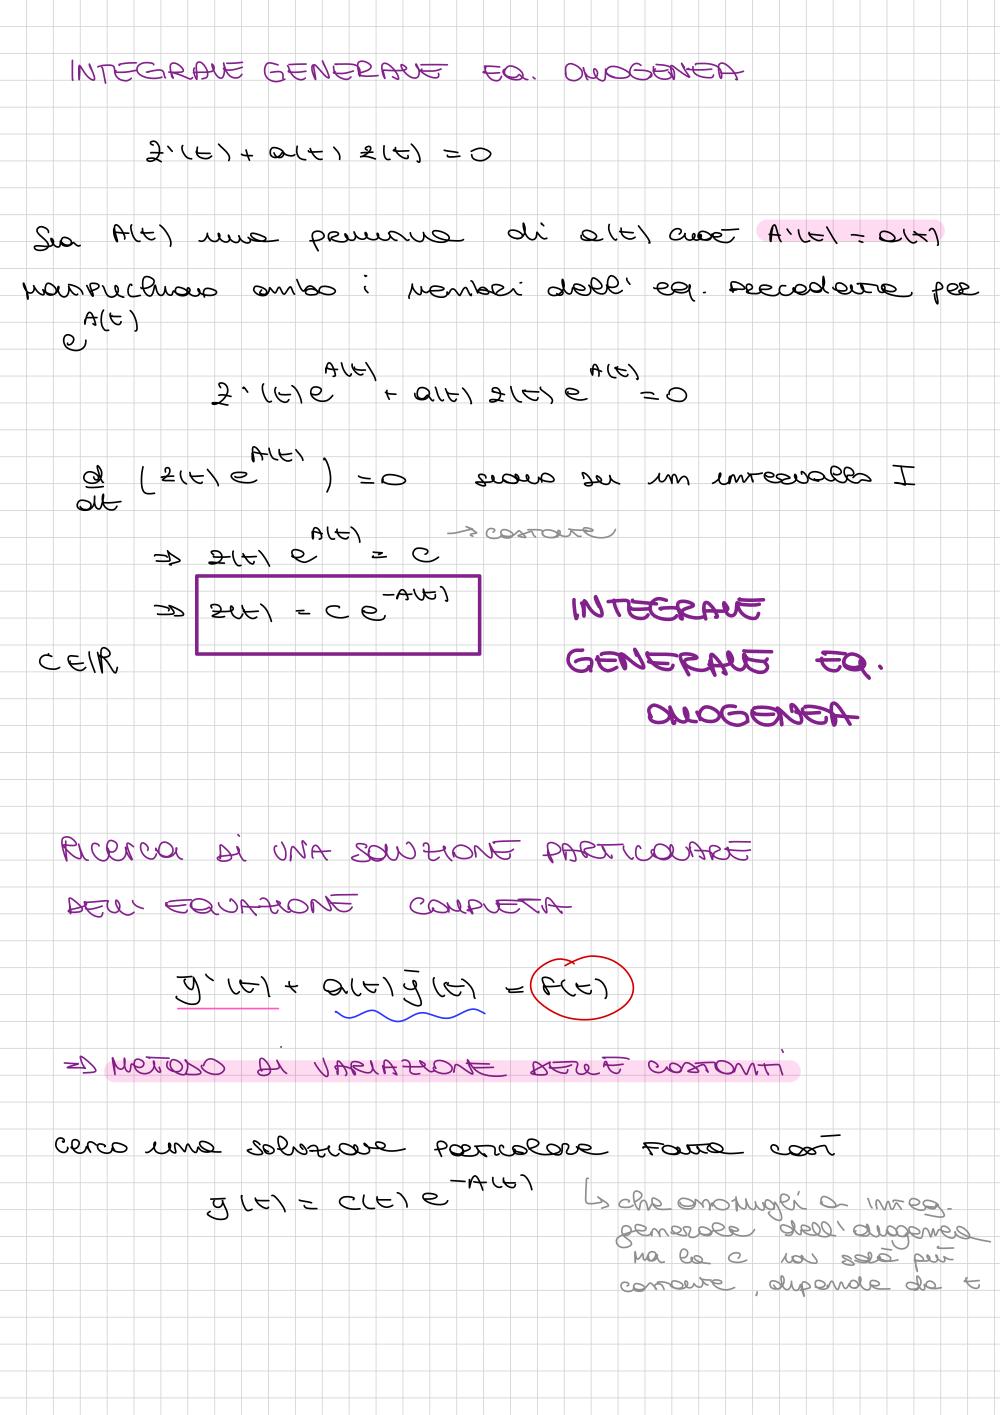 INTEGRALE GENERALE EQ. OMOGENEA
z'(t) + a(t) z(t) = 0
Sia A(t) una primitiva di a(t) cioè A'(t) = a(t)
moltiplichiamo ambo i membri dell' eq. precedente per
e^{A(t)}
z'(t) e^{A(t)} + a(t) z(t) e^{A(t)} = 0
d/dt (z(t) e^{A(t)}) = 0 siamo su un intervallo I
⇒ z(t) e^{A(t)} = c → costante
⇒ z(t) = c e^{-A(t)} INTEGRALE
C ∈ ℝ GENERALE EQ.
OMOGENEA
Ricerca di UNA SOLUZIONE PARTICOLARE
DELL' EQUAZIONE COMPLETA
ȳ'(t) + a(t) ȳ(t) = f(t)
⇒ METODO di VARIAZIONE DELLE COSTANTI
cerco una soluzione particolare fatta così
ȳ(t) = c(t) e^{-A(t)} ↳ che assomigli a integ.
generale dell' omogenea
ma la c non sarà più
costante, dipende da t